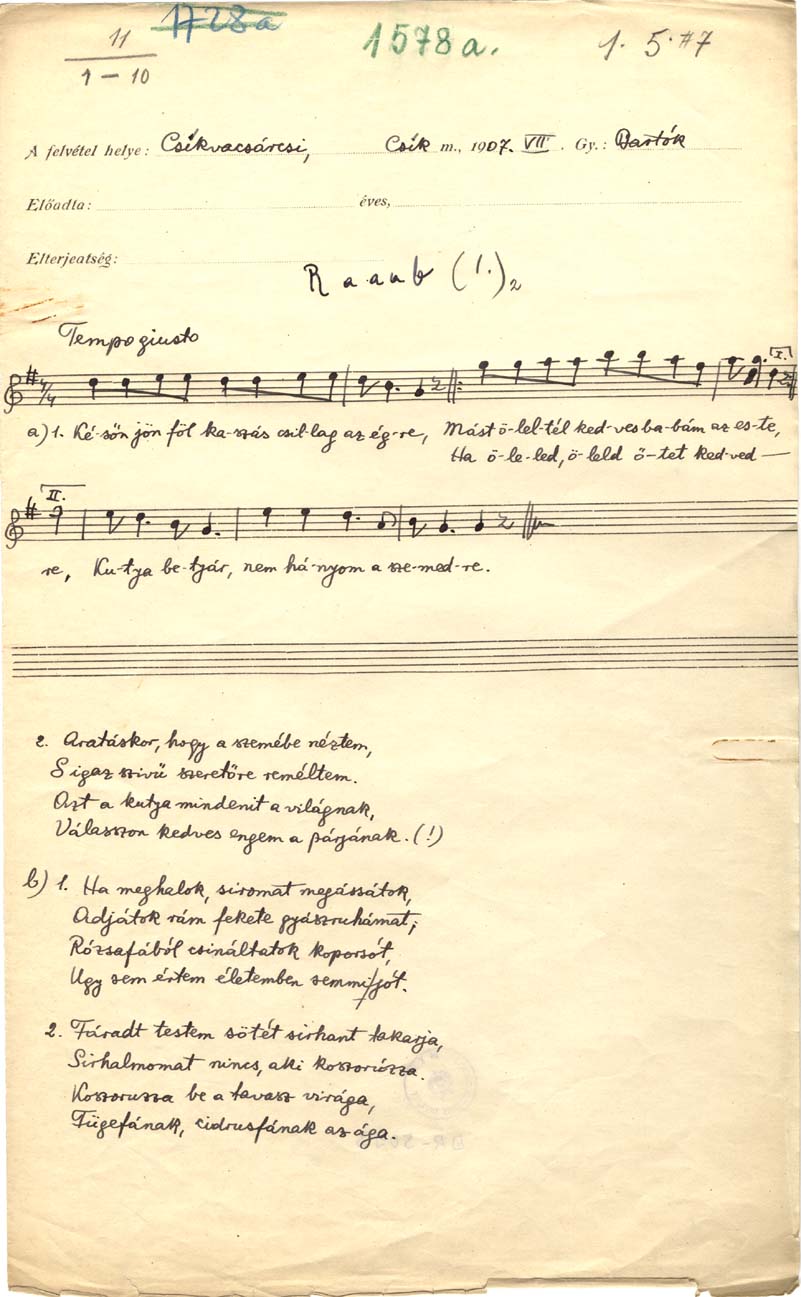 1728a
11
1 – 10
1578a.
1. 5. #7
A felvétel helye: Csíkvacsárcsi, Csík m., 1907. VII. Gy.: Bartók
Előadta: éves,
Elterjeatség:
R a a a b (1.)2
Tempo giusto
7/4
I.
a) 1. Ké-sőn jön föl ka-szás csil-lag az ég-re, Mást ö-lel-tél ked-ves ba-bám az es-te,
Ha ö-le-led, ö-leld ő-tet ked-ved —
II.
re, Ku-tya be-tyár, nem há-nyom a sze-med-re.
2. Aratáskor, hogy a szemébe néztem,
S igaz szivü szeretőre reméltem.
Azt a kutya mindenit a világnak,
Válasszon kedves engem a párjának. (!)
b) 1. Ha meghalok, siromat megássátok,
Adjátok rám fekete gyászruhámat;
Rózsafából csináltatok koporsót,
Ugy sem értem életemben semmi/jót.
2. Fáradt testem sötét sirhant takarja,
Sirhalmomat nincs, aki koszorúzza.
Koszoruzza be a tavasz virága,
Fügefának, cidrusfának az ága.